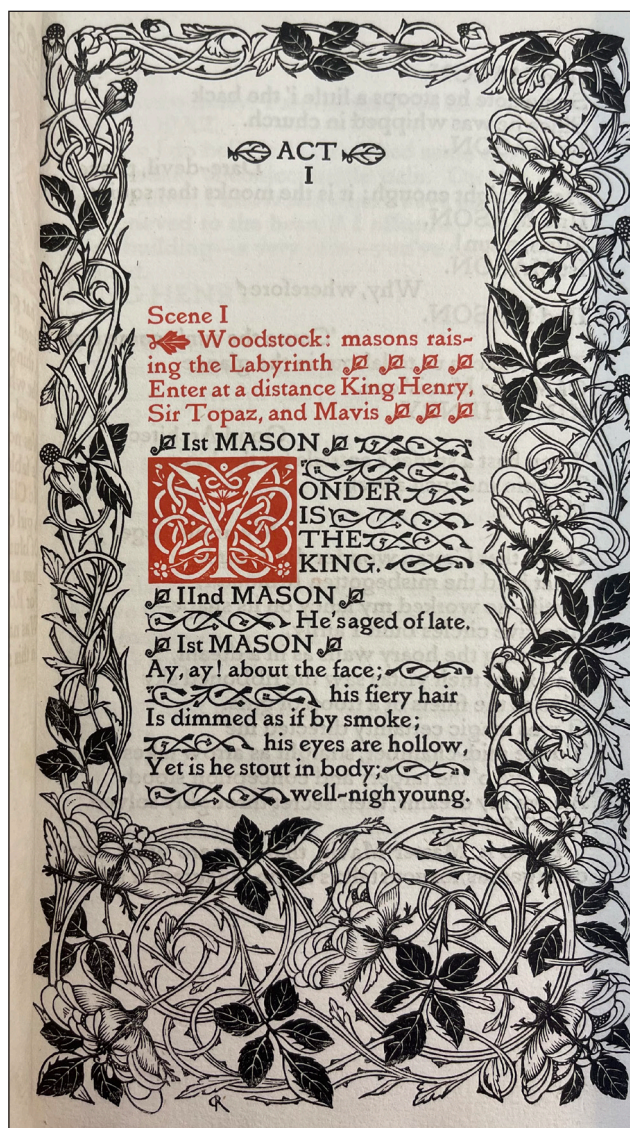 ACT
I
Scene I
Woodstock: masons rais-
ing the Labyrinth
Enter at a distance King Henry,
Sir Topaz, and Mavis
Ist MASON
YONDER
IS
THE
KING.
IInd MASON
He's aged of late,
Ist MASON
Ay, ay! about the face;
his fiery hair
Is dimmed as if by smoke;
his eyes are hollow,
Yet is he stout in body;
well-nigh young.
CR